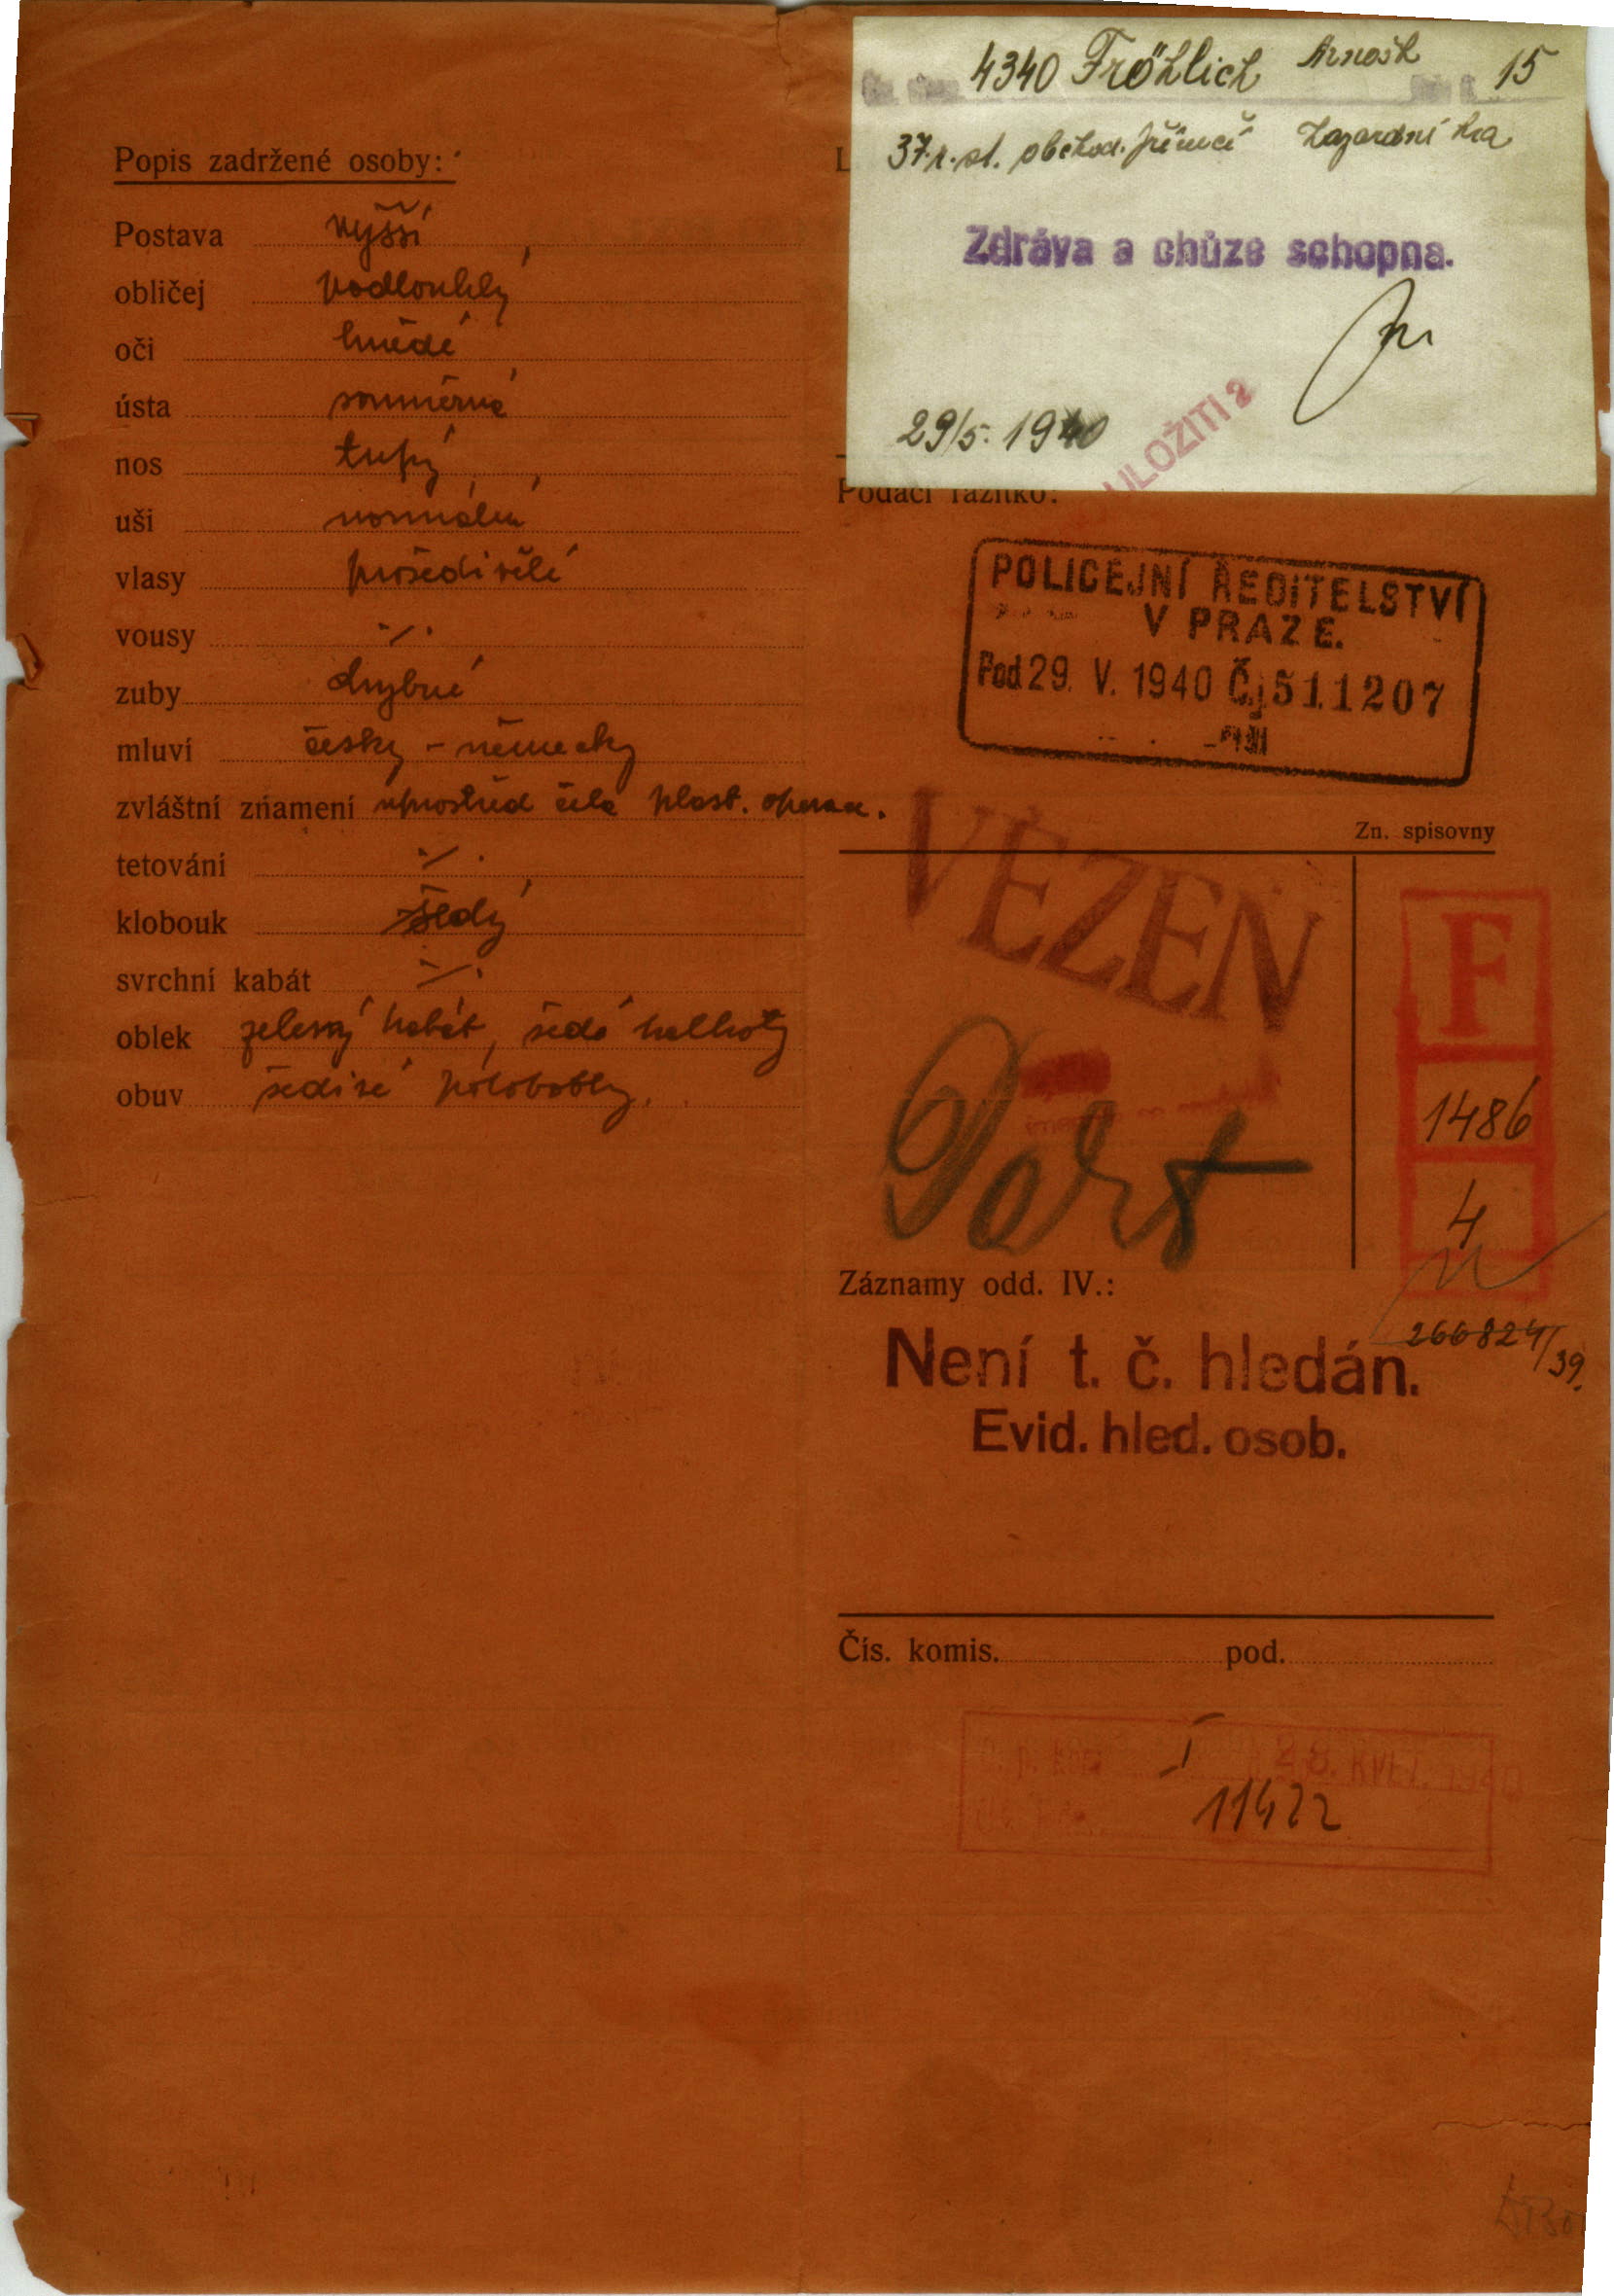 Popis zadržené osoby:
Postava vyšší
obličej podlouhlý
oči hnědé
ústa souměrná
nos tupý
uši normální
vlasy prošedivělé
vousy ·/·
zuby chybné
mluví česky - německy
zvláštní znamení uprostřed čela plast. operac.
tetování ·/·
klobouk šedý
svrchní kabát ·/·
oblek zelený kabát, šedé kalhoty
obuv šedivé polobotky.
4340 Fröhlich Arnošt 15
37.r.st. obchod. příručí hazardní hra
Zdráva a chůze schopna.
29/5. 1940
ULOŽITI 2
Podací razítko:
POLICEJNÍ ŘEDITELSTVÍ
V PRAZE.
Pod 29. V. 1940 Č.j 511207
Zn. spisovny
VĚZEŇ
F
1486
4
Záznamy odd. IV.:
266824/39.
Není t. č. hledán.
Evid. hled. osob.
Čís. komis. pod.
I 28. KVĚT. 1940
11422